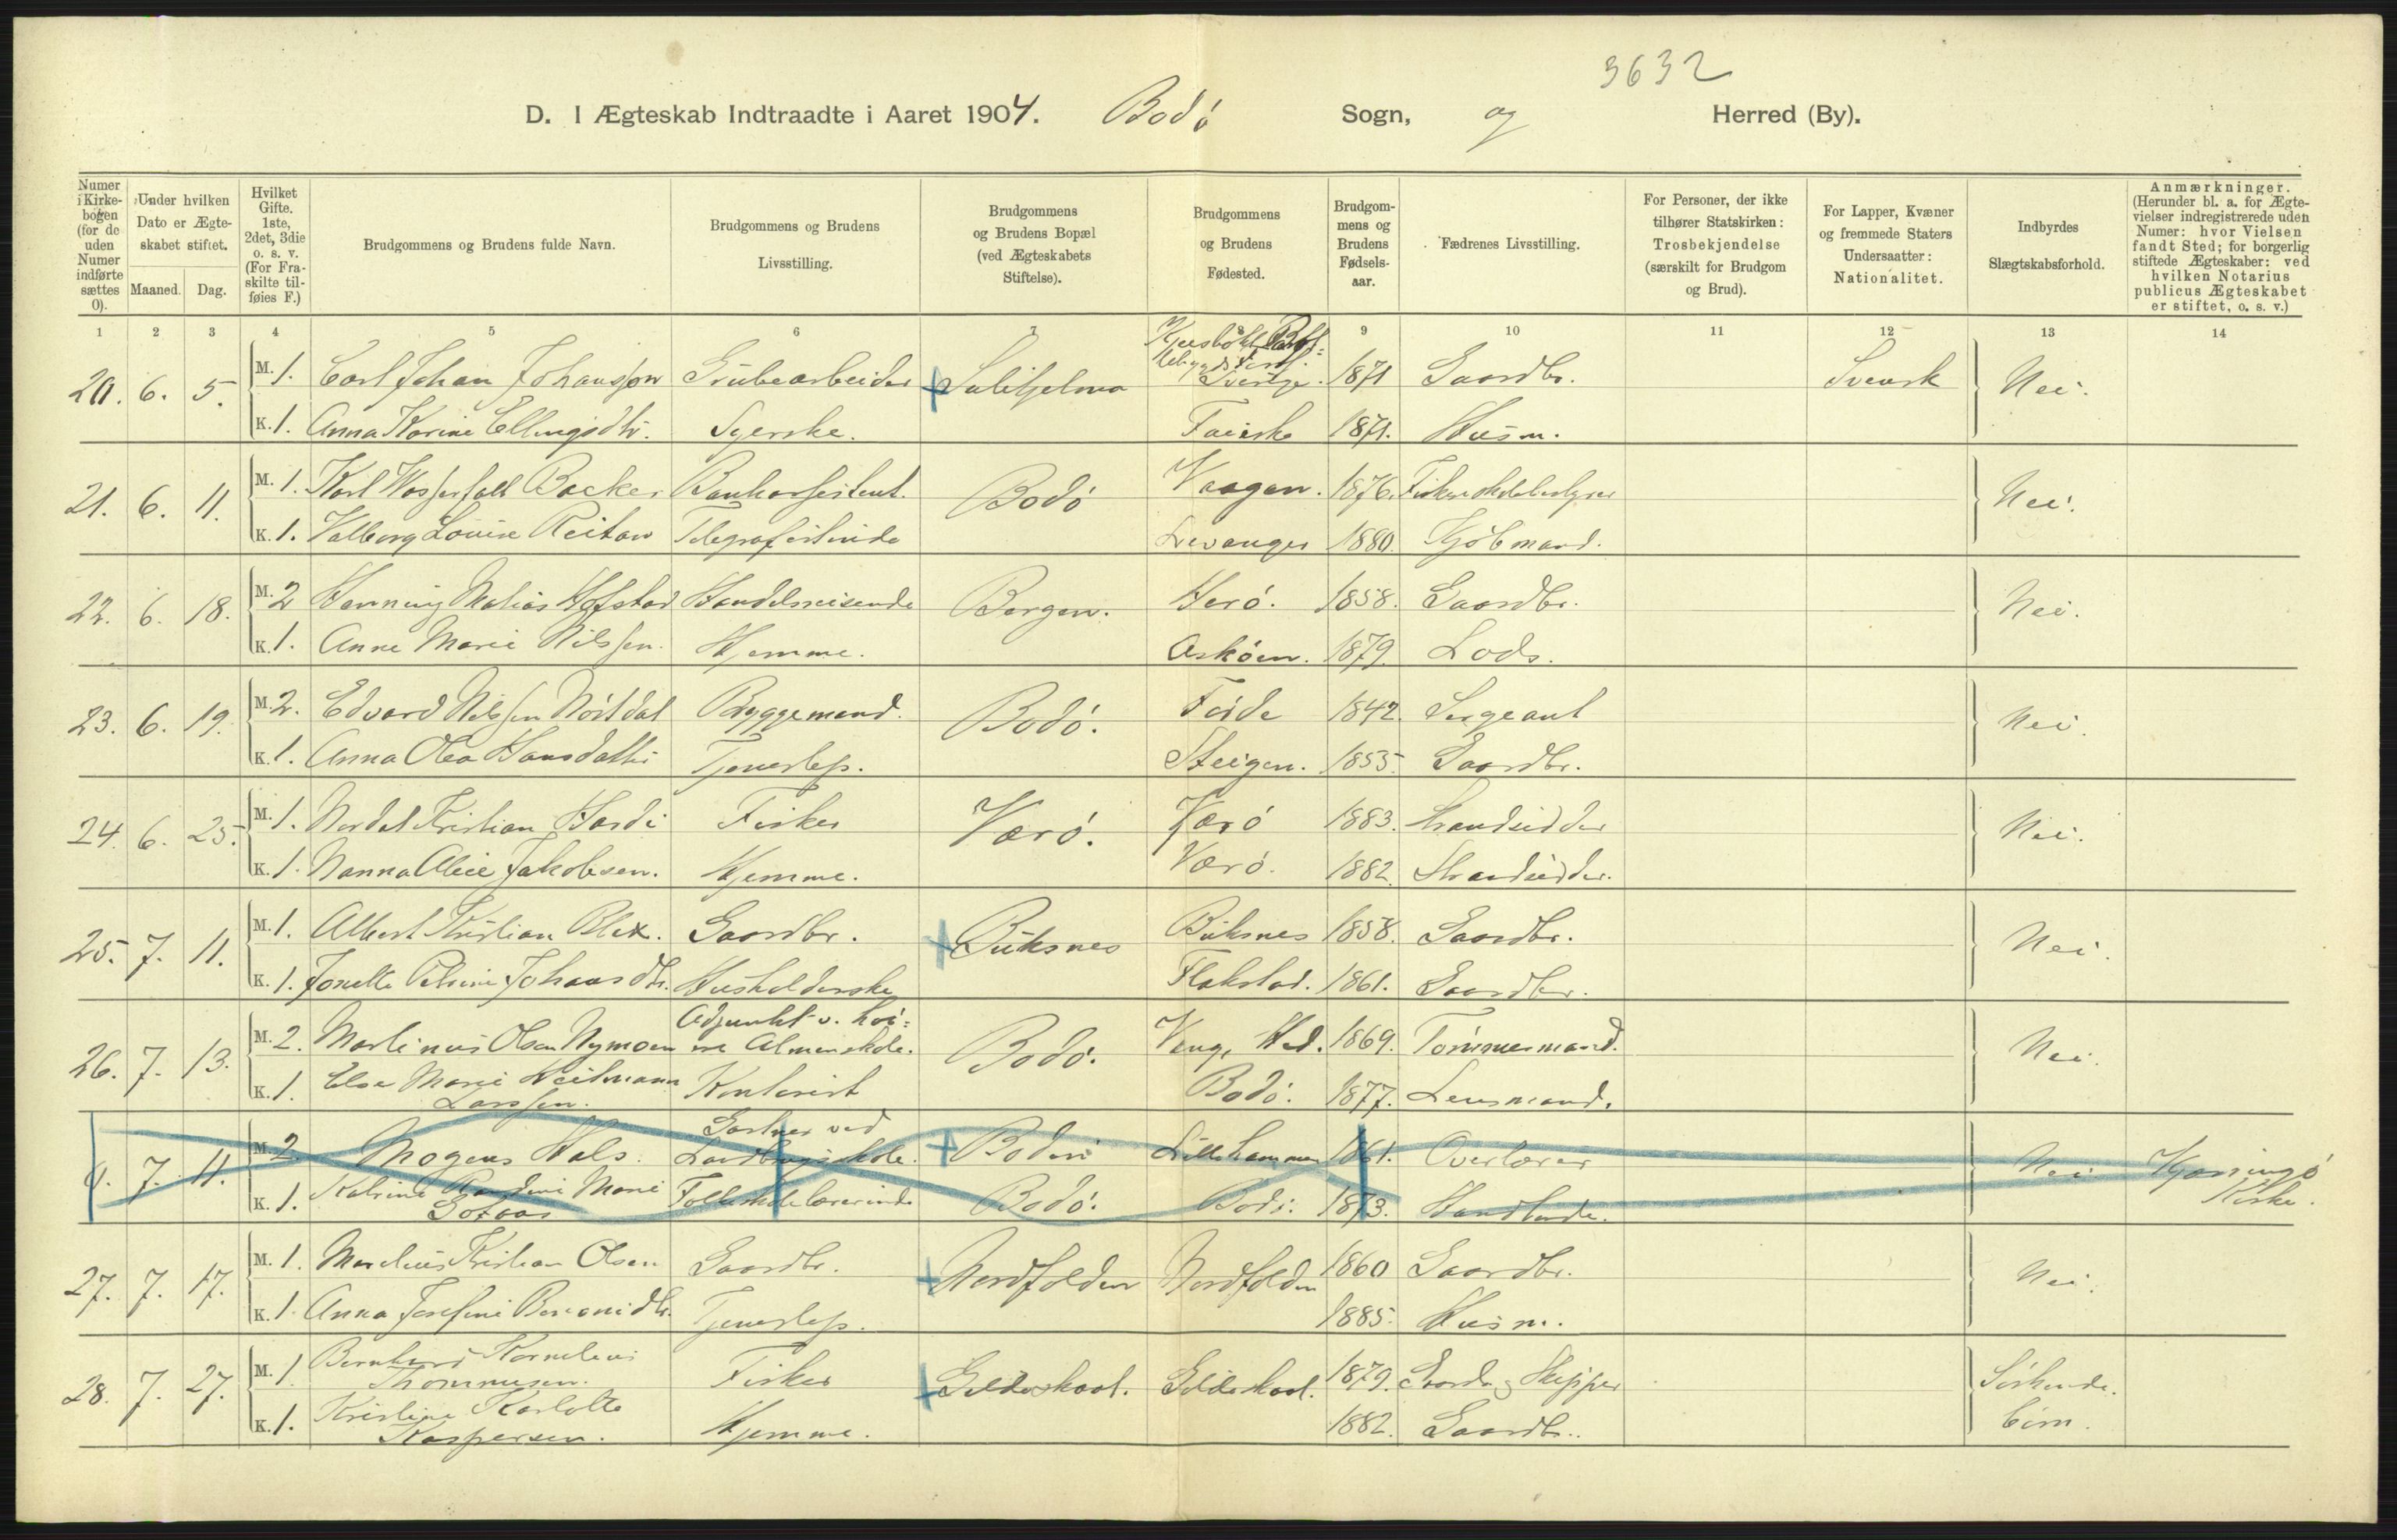 3632
D. I Ægteskab Indtraadte i Aaret 1904. Bodö Sogn, og Herred (By).
Numer i Kirkebogen (for de uden Numer indførte sættes 0).
Under hvilken Dato er Ægteskabet stiftet.
Maaned. Dag.
Hvilket Gifte. 1ste, 2det, 3die o. s. v. (For Fraskilte tilføies F.)
Brudgommens og Brudens fulde Navn.
Brudgommens og Brudens Livsstilling.
Brudgommens og Brudens Bopæl (ved Ægteskabets Stiftelse).
Brudgommens og Brudens Fødested.
Brudgommens og Brudens Fødselsaar.
Fædrenes Livsstilling.
For Personer, der ikke tilhører Statskirken: Trosbekjendelse (særskilt for Brudgom og Brud).
For Lapper, Kvæner og fremmede Staters Undersaatter: Nationalitet.
Indbyrdes Slægtskabsforhold.
Anmærkninger. (Herunder bl. a. for Ægtevielser indregistrerede uden Numer: hvor Vielsen fandt Sted; for borgerlig stiftede Ægteskaber: ved hvilken Notarius publicus Ægteskabet er stiftet, o. s. v.)
1 2 3 4 5 6 7 9 10 11 12 13 14
20. 6. 5. M. 1. Carl Johan Johansson Grubearbeider Sulitjelma Sverige. 1871 Gaardbr. Svensk Nei.
K. 1. Anna Karine Ellingsdtr. Syerske. Fauske 1871. Husm.
21. 6. 11. M. 1. Karl Wasserfall Backer Bankassistent. Bodö Vaagan. 1876. Fiskeskolebestyrer Nei.
K. 1. Valborg Louise Reitan Telegrafistinde Levanger 1880. Kjöbmand.
22. 6. 18. M. 2 Henning Matias Hofstad Handelsreisende Bergen. Herö. 1858. Gaardbr. Nei.
K. 1. Anne Marie Nilssen. Hjemme. Asköen. 1879. Lods.
23. 6. 19. M. 2. Edvard Nilssen Bryggemand. Bodö. Förde 1842. Sergeant Nei.
K. 1. Anna Olea Hansdatter Tjenestep. Steigen. 1855. Gaardbr.
24. 6. 25. M. 1. Kristian Hardi Fisker Værö. Værö 1883. Strandsidder Nei.
K. 1. Nanna Alice Jakobsen. Hjemme. Værö. 1882. Strandsidder.
25. 7. 11. M. 1. Albert Kristian Blix. Gaardbr. Buksnes Buksnes 1858. Gaardbr. Nei.
K. 1. Jonette Petrine Johansdtr. Husholderske Flakstad. 1861. Gaardbr.
26. 7. 13. M. 2. Martinus Olsen Nymoen Adjunkt v. höiere Almenskole. Bodö. Vang, Hed. 1869. Tömmermand. Nei.
K. 1. Elsa Marie Heitmann Larssen. Kontorist Bodö. 1877. Lensmand.
0. 7. 11. M. 2. Mogens Hals. Gartner ved Landbrugsskole. Bodin Lillehammer 1861. Overlærer Nei. Kjerringö Kirke.
K. 1. Katrine Marie Folkeskolelærerinde Bodö. Bodö. 1873. Handlende.
27. 7. 17. M. 1. Marelius Kristian Olsen Gaardbr. Nordfolden Nordfolden 1860 Gaardbr. Nei.
K. 1. Anna Josefine Benonidtr. Tjenestep. 1885. Husm.
28. 7. 27. M. 1. Bernhard Kornelius Thommesen. Fisker Gildeskaal. Gildeskaal. 1879. Gaardb. og Skipper Söskendebörn.
K. 1. Kristine Karlotte Kaspersen. Hjemme. 1882. Gaardbr.